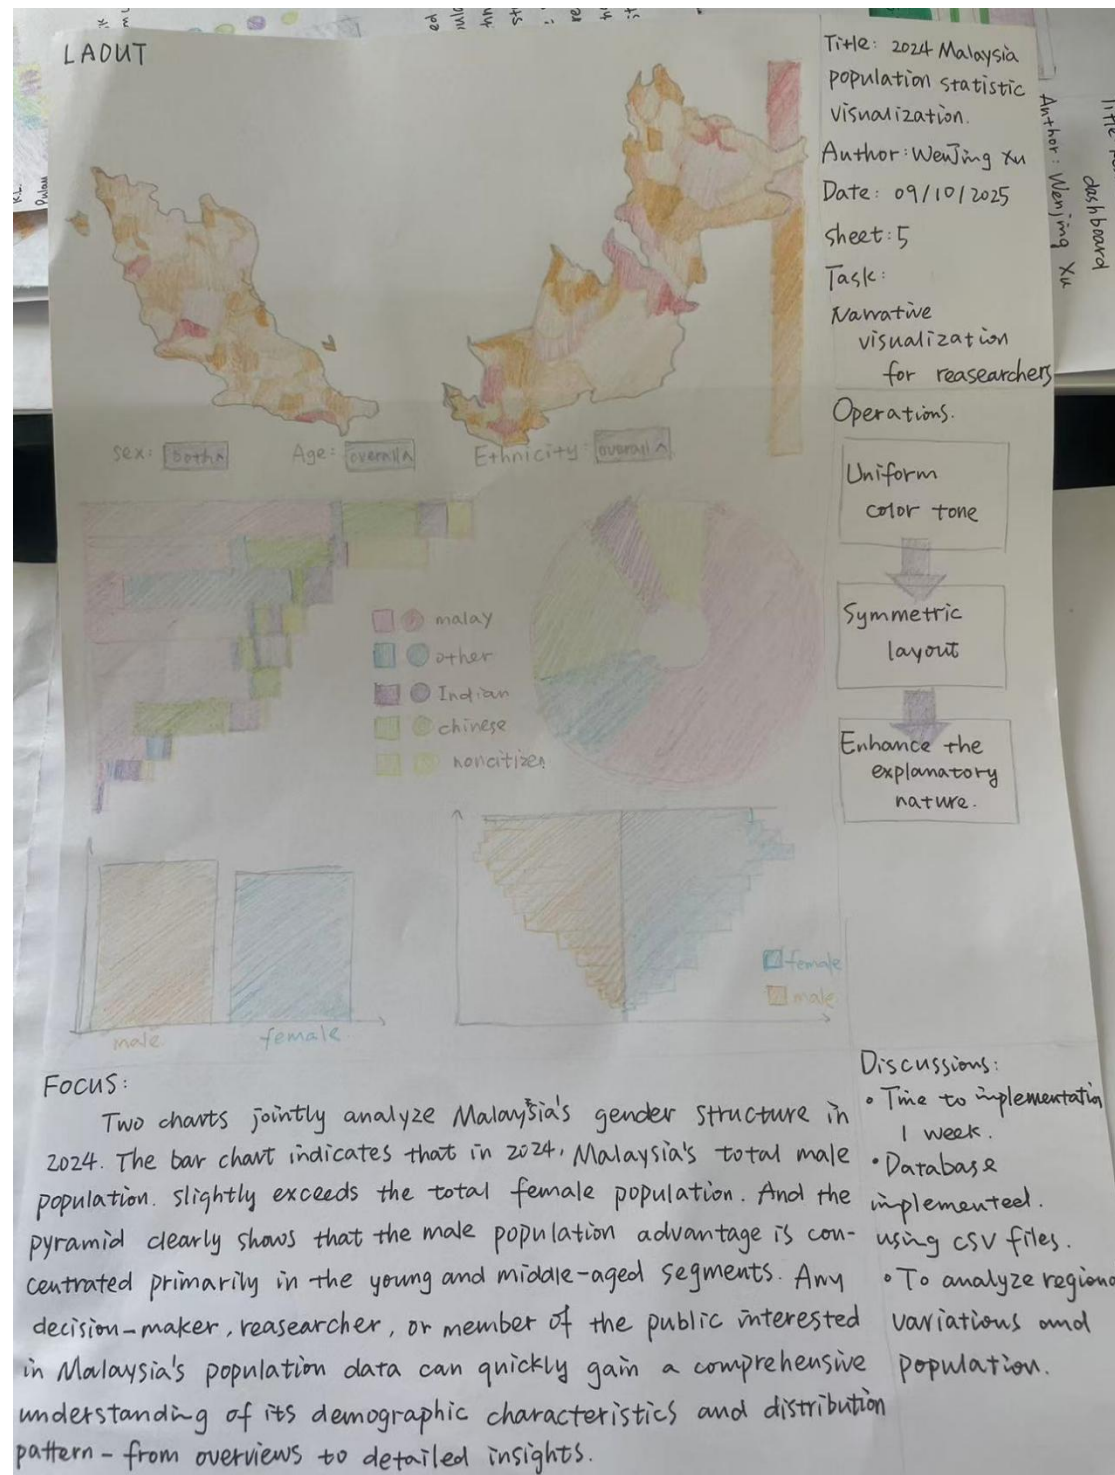 LAOUT
Title: 2024 Malaysia
population statistic
visualization.
Author: WenJing Xu
Date: 09/10/2025
sheet: 5
Task:
Narrative
visualization
for reasearchers
Operations.
Uniform
color tone
Symmetric
layout
Enhance the
explanatory
nature.
Sex: both Age: overall Ethnicity: overall
malay
other
Indian
chinese
noncitizen
male female
female
male
FOCUS:
Two charts jointly analyze Malaysia's gender structure in
2024. The bar chart indicates that in 2024, Malaysia's total male
population. slightly exceeds the total female population. And the
pyramid clearly shows that the male population advantage is con-
centrated primarily in the young and middle-aged segments. Any
decision-maker, reasearcher, or member of the public interested
in Malaysia's population data can quickly gain a comprehensive
understanding of its demographic characteristics and distribution
pattern - from overviews to detailed insights.
Discussions:
• Time to implementation
1 week.
• Database
implementeed.
using CSV files.
• To analyze regiona
variations and
population.
Author: Wenjing Xu
dashboard
Title
K.L.
Pulau